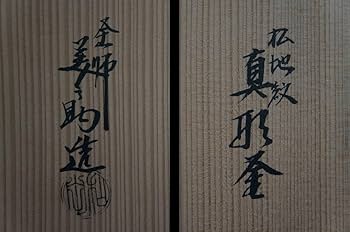 釜師
美之助造
松地紋
真形釜